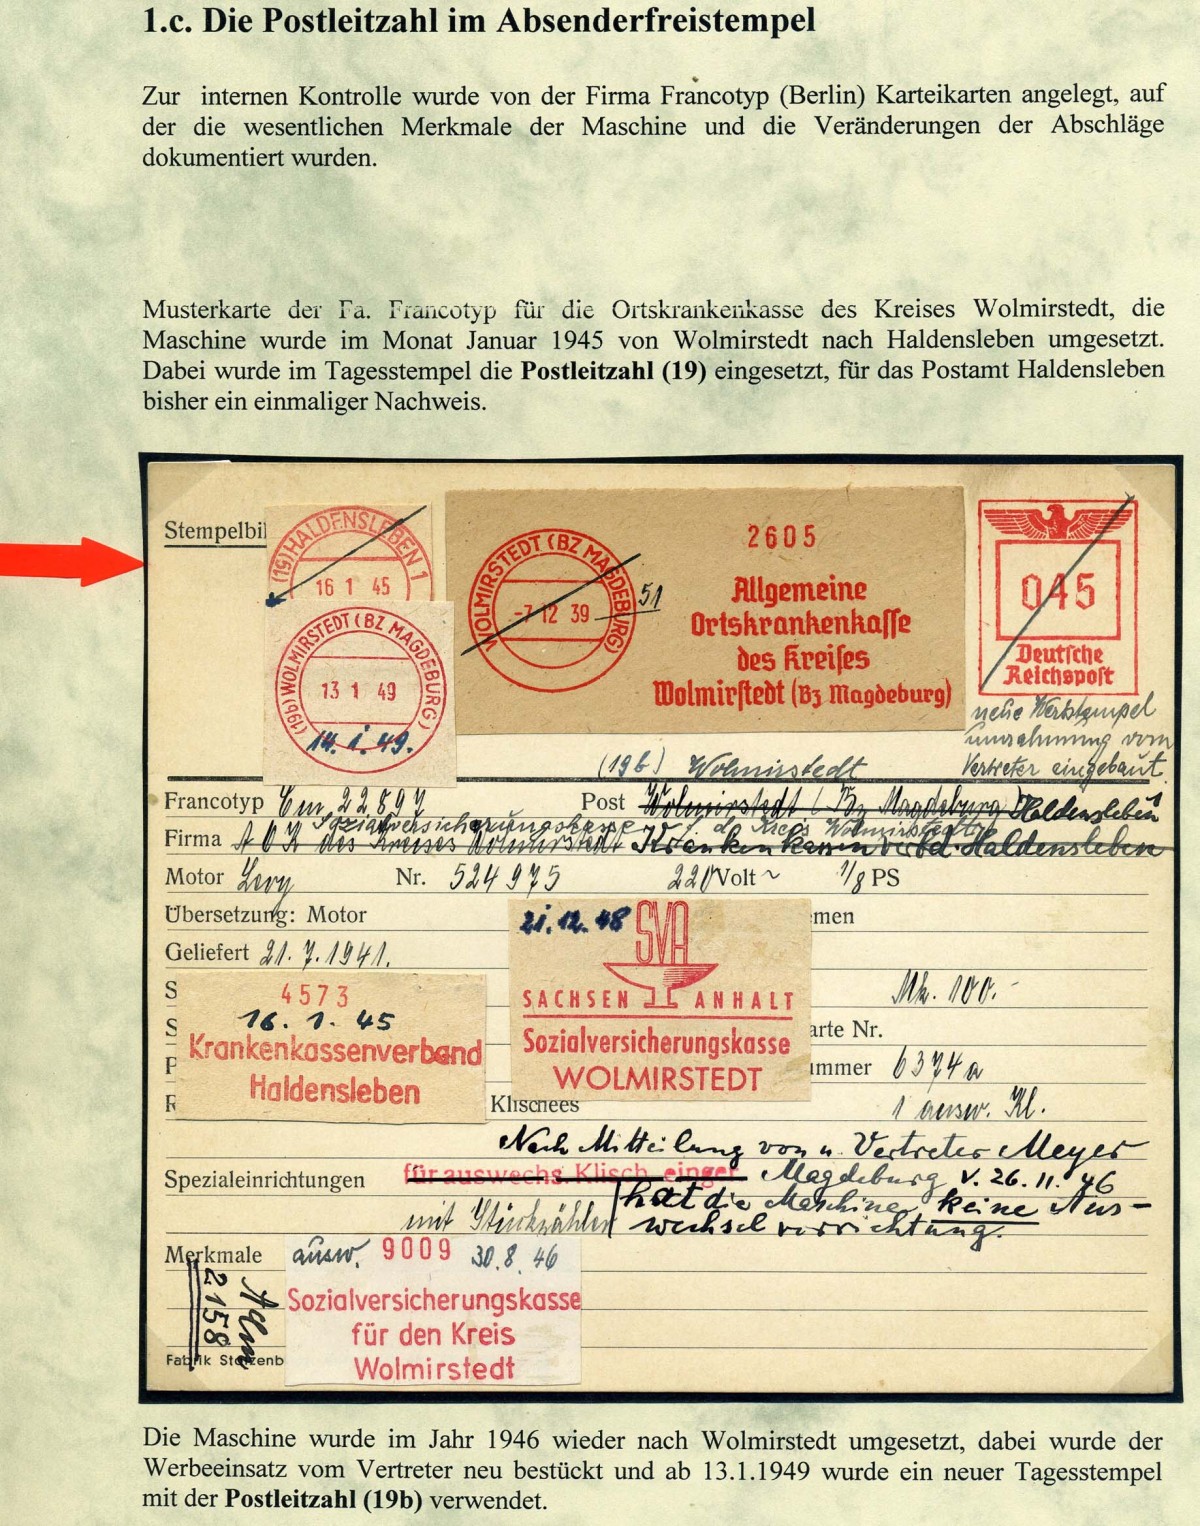 1.c. Die Postleitzahl im Absenderfreistempel
Zur internen Kontrolle wurde von der Firma Francotyp (Berlin) Karteikarten angelegt, auf
der die wesentlichen Merkmale der Maschine und die Veränderungen der Abschläge
dokumentiert wurden.
Musterkarte der Fa. Francotyp für die Ortskrankenkasse des Kreises Wolmirstedt, die
Maschine wurde im Monat Januar 1945 von Wolmirstedt nach Haldensleben umgesetzt.
Dabei wurde im Tagesstempel die Postleitzahl (19) eingesetzt, für das Postamt Haldensleben
bisher ein einmaliger Nachweis.
Stempelbil
(19) HALDENSLEBEN 1
16 1 45
(19b) WOLMIRSTEDT (BZ MAGDEBURG)
13 1 49
14. 1. 49.
WOLMIRSTEDT (BZ MAGDEBURG)
-7 12 39
51
2605
Allgemeine
Ortskrankenkasse
des Kreises
Wolmirstedt (Bz Magdeburg)
045
Deutsche
Reichspost
neue Werbstempel
umrahmung vom
Vertreter eingebaut.
(19b) Wolmirstedt
Francotyp Cm 22897 Post Wolmirstedt (Bz Magdeburg) Haldensleben 1
Sozialversicherungskasse f. d. Kreis Wolmirstedt
Firma AOK des Kreises Wolmirstedt Krankenkassenverbd. Haldensleben
Motor Levy Nr. 524975 220 Volt ~ 1/8 PS
Übersetzung: Motor emen
Geliefert 21.7.1941.
21.12.48
SVA
SACHSEN ANHALT
Sozialversicherungskasse
WOLMIRSTEDT
4573
16. 1. 45
Krankenkassenverband
Haldensleben
Mk. 100.-
arte Nr.
ummer 6374a
Klischees 1 ausw. Kl.
Nach Mitteilung von u. Vertreter Meyer
Spezialeinrichtungen für auswechs. Klisch. einger. Magdeburg v. 26.11.46
hat die Maschine keine Aus-
mit Stückzähler wechselvorrichtung.
Merkmale
ausw. 9009 30.8.46
Sozialversicherungskasse
für den Kreis
Wolmirstedt
2158
Fabrik Stolzenb
Die Maschine wurde im Jahr 1946 wieder nach Wolmirstedt umgesetzt, dabei wurde der
Werbeeinsatz vom Vertreter neu bestückt und ab 13.1.1949 wurde ein neuer Tagesstempel
mit der Postleitzahl (19b) verwendet.